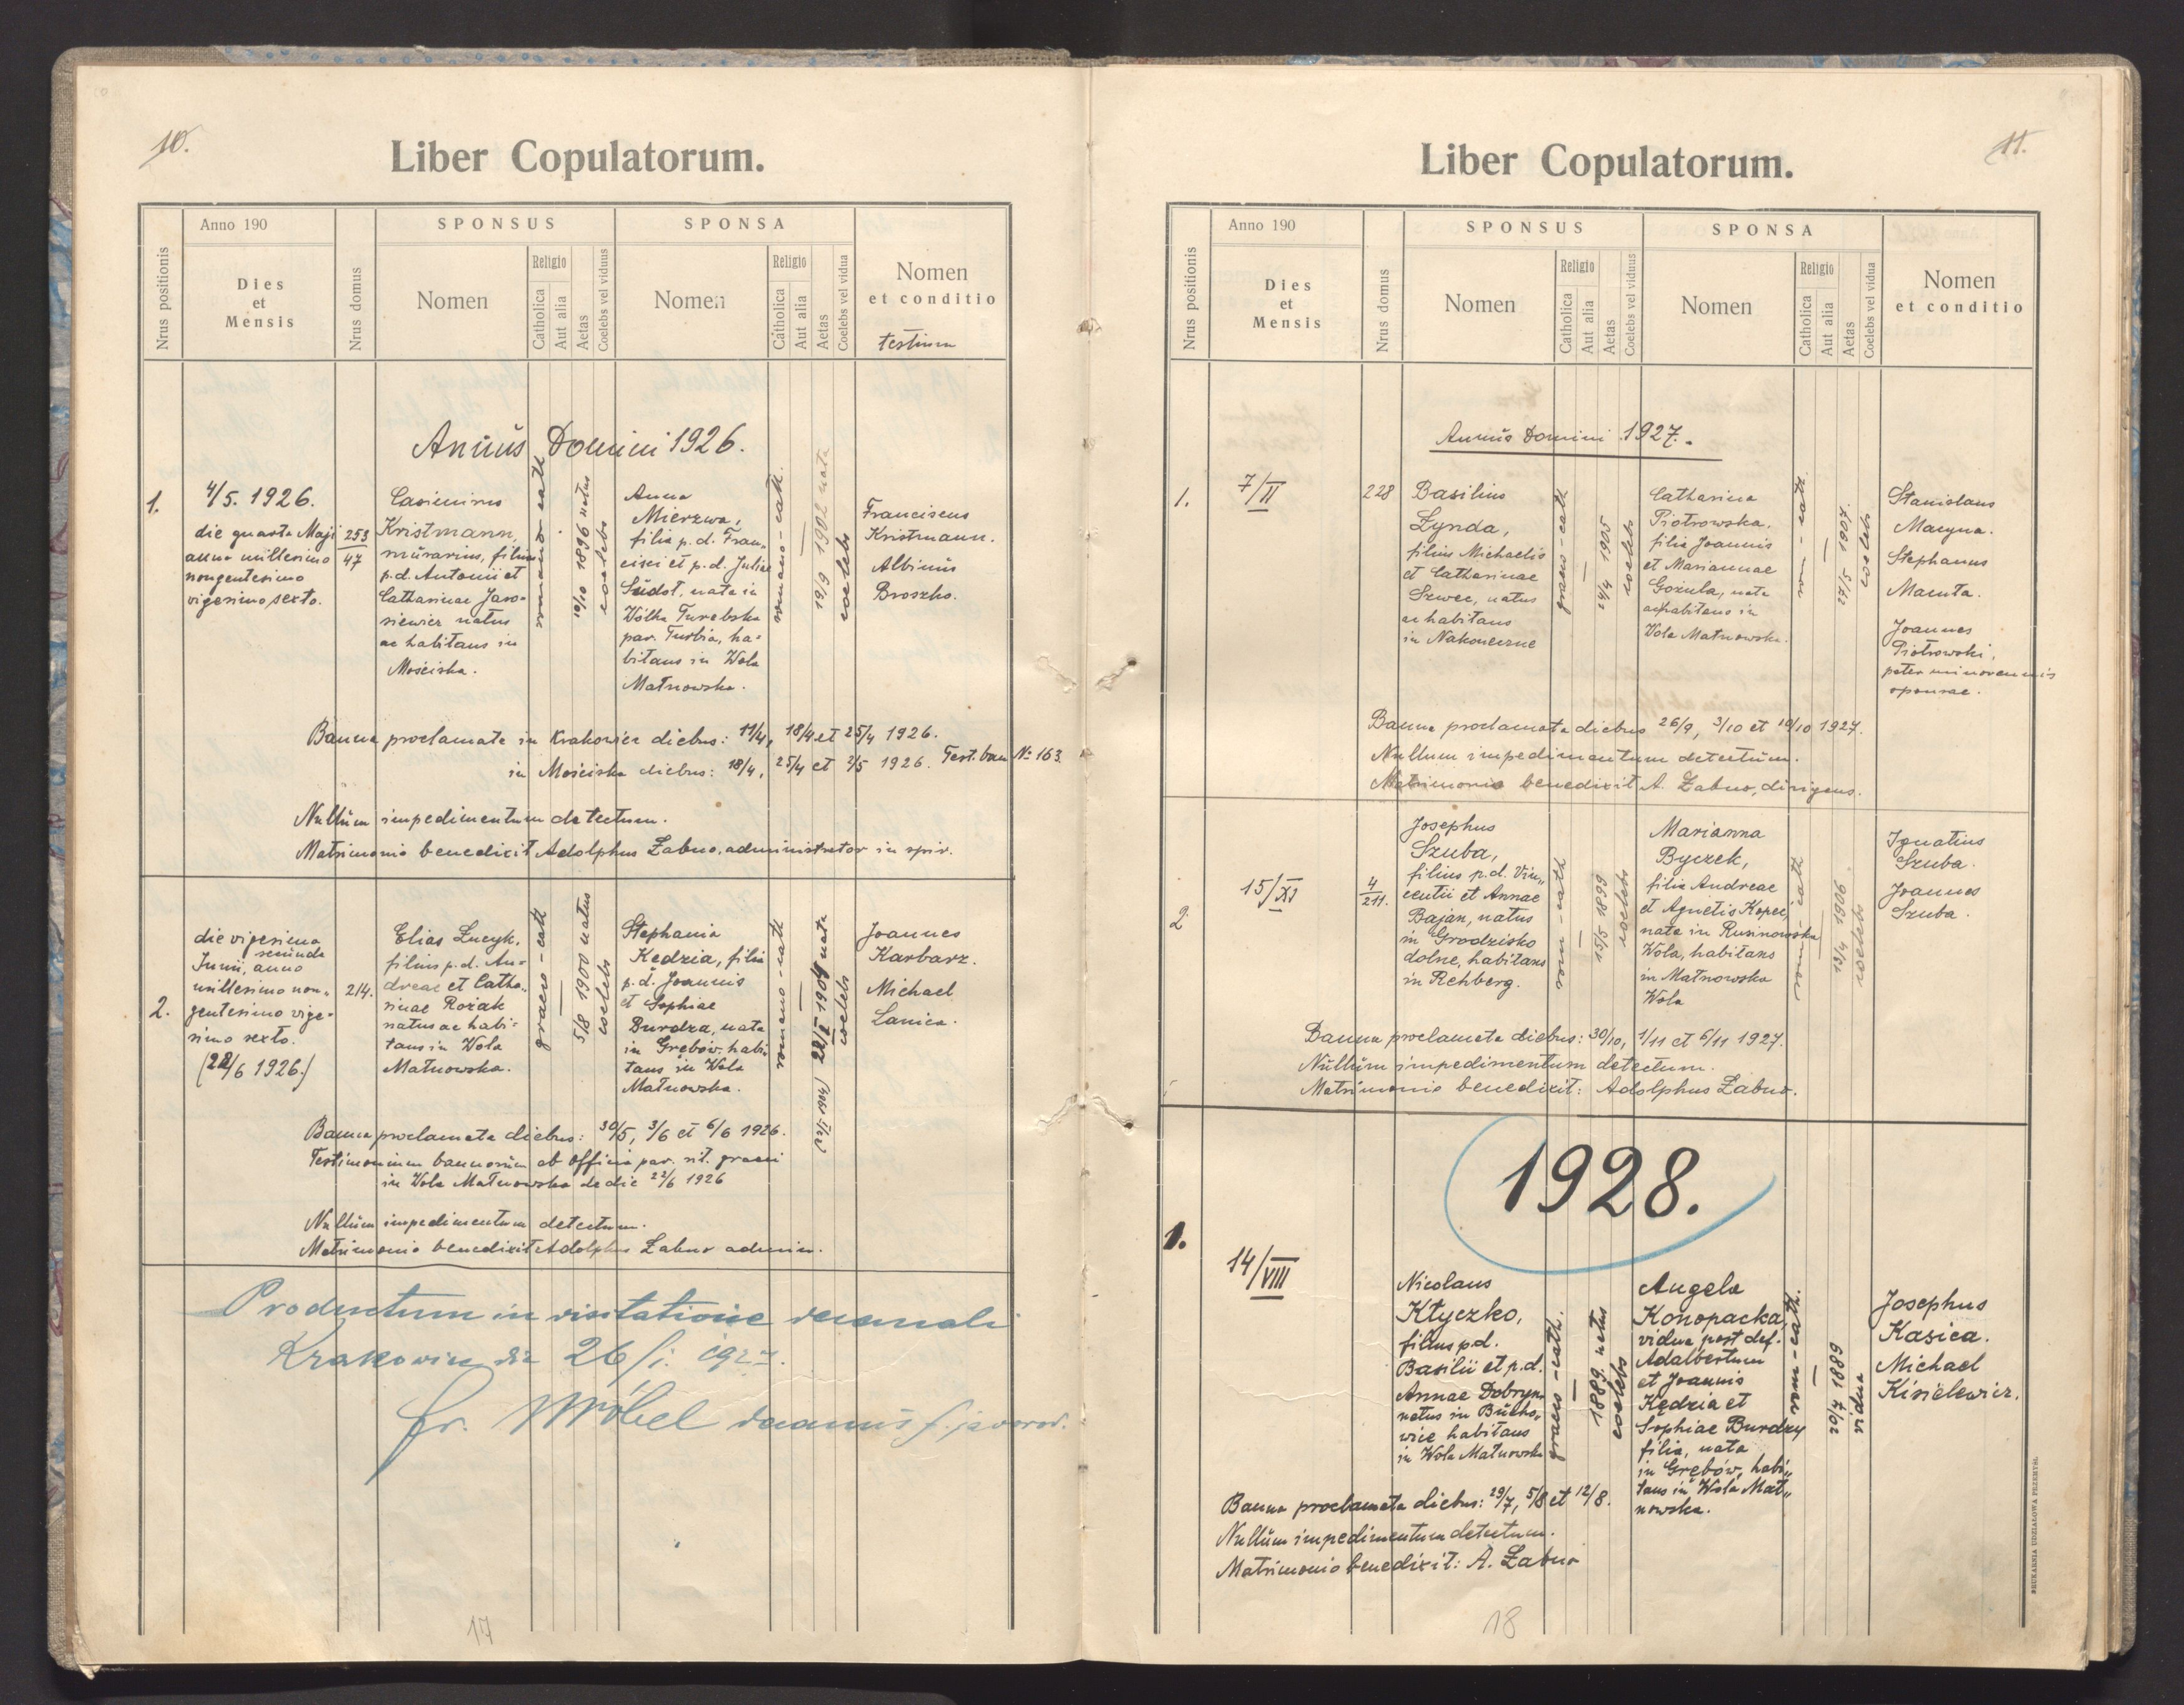 10.
Liber Copulatorum.
Nrus positionis
Anno 190
Dies
et
Mensis
Nrus domus
SPONSUS
Nomen
Religio
Catholica
Aut alia
Aetas
Coelebs vel viduus
SPONSA
Nomen
Religio
Catholica
Aut alia
Aetas
Coelebs vel vidua
Nomen
et conditio
testium
Annus Domini 1926.
1.
4/5. 1926.
die quarta Maji
anno millesimo
nongentesimo
vigesimo sexto.
253
47
Casimirus
Kristmann,
murarius, filius
p.d. Antonii et
Catharinae Jaro-
siewicz natus
ac habitans in
Mościska.
romano-cath
10/10 1896 natus
coelebs
Anna
Mierzwa,
filia p.d. Fran„
cisci et p.d. Juliae
Sudoł, nata in
Wólka Turebska
par. Turbia, ha=
bitans in Wola
Małnowska.
romano-cath.
19/9 1902 nata
coelebs
Franciscus
Kristmann.
Albinus
Broszko.
Banna proclamata in Krakowiec diebus: 11/4, 18/4 et 25/4 1926.
in Mościska diebus: 18/4, 25/4 et 2/5 1926. Test. ban № 163.
Nullum impedimentum detectum.
Matrimonio benedixit Adolphus Żabno, administrator in spir.
2.
die vigesima
secunda
Junii, anno
millesimo non„
gentesimo vige-
simo sexto.
(22/6 1926.)
214.
Elias Łucyk,
filius p.d. An=
dreae et Catha„
rinae Rożak
natus ac habi=
tans in Wola
Małnowska.
graeco-cath
5/8 1900 natus
coelebs
Stephania
Kędzia, filia
p.d. Joannis
et Sophiae
Burdza, nata
in Grębów, habi„
tans in Wola
Małnowska.
romano-cath
22/I 1904 nata
coelebs
Joannes
Karbarz.
Michael
Lanica.
Banna proclamata diebus: 30/5, 3/6 et 6/6 1926.
Testimonium bannorum ab officio par. rit. graeci
in Wola Małnowska de die 22/6 1926
Nullum impedimentum detectum.
Matrimonio benedixit Adolphus Żabno admin.
Productum in visitatione decanali
Krakowiec die 26/I. 1927.
fr. Wróbel decanus f. javorov.
17
11.
Liber Copulatorum.
Nrus positionis
Anno 190
Dies
et
Mensis
Nrus domus
SPONSUS
Nomen
Religio
Catholica
Aut alia
Aetas
Coelebs vel viduus
SPONSA
Nomen
Religio
Catholica
Aut alia
Aetas
Coelebs vel vidua
Nomen
et conditio
Annus Domini 1927.
1.
7/II
228
Basilius
Zynda,
filius Michaelis
et Catharinae
Szwec, natus
ac habitans
in Nakoneczne
graeco-cath
24/4 1905
coelebs
Catharina
Piotrowska,
filia Joannis
et Mariannae
Gozula, nata
ac habitans in
Wola Małnowska.
rom-cath
27/5 1907.
coelebs
Stanislaus
Macyna.
Stephanus
Macuta.
Joannes
Piotrowski,
pater minorennis
sponsae.
Banna proclamata diebus 26/9, 3/10 et 10/10 1927.
Nullum impedimentum detectum.
Matrimonio benedixit A. Żabno, dirigens.
2
15/XI
4
211.
Josephus
Szuba,
filius p.d. Vin„
centii et Annae
Bajan, natus
in Grodzisko
dolne, habitans
in Rehberg.
rom-cath
15/5 1899
coelebs
Marianna
Byczek,
filia Andreae
et Agnetis Kopeć,
nata in Rusinowska
Wola, habitans
in Małnowska
Wola
rom-cath
13/4 1906.
coelebs
Ignatius
Szuba.
Joannes
Szuba.
Banna proclamata diebus: 30/10, 1/11 et 6/11 1927.
Nullum impedimentum detectum.
Matrimonio benedixit: Adolphus Żabno.
1928.
1.
14/VIII
Nicolaus
Kłyczko,
filius p.d.
Basilii et p.d.
Annae Dobryn
natus in Bucho„
wice habitans
in Wola Małnowska
graeco-cath.
1889. natus
coelebs
Angela
Konopacka,
vidua post def.
Adalbertum
et Joannis
Kędzia et
Sophiae Burdzy
filia, nata
in Grębów, habi„
tans in Wola Mał„
nowska.
rom-cath.
20/7 1889
vidua
Josephus
Kasica.
Michael
Kisielewicz.
Banna proclamata diebus: 29/7, 5/8 et 12/8.
Nullum impedimentum detectum.
Matrimonio benedixit: A. Żabno
18
DRUKARNIA UDZIAŁOWA PRZEMYŚL.